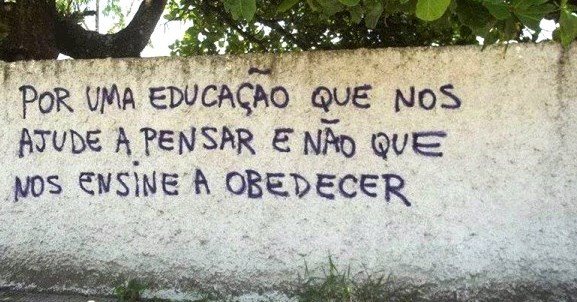 POR UMA EDUCAÇÃO QUE NOS
AJUDE A PENSAR E NÃO QUE
NOS ENSINE A OBEDECER